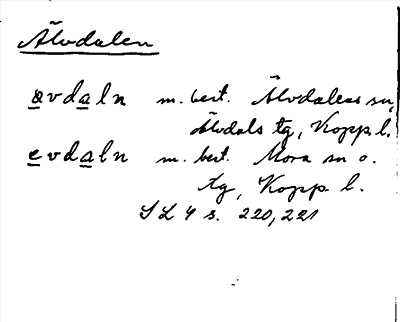 Älvdalen
ävdaln m. best. Älvdalens sn,
Älvdals tg, Kopp. l.
evdaln m. best. Mora sn o.
tg, Kopp. l.
SL 4 s. 220, 221